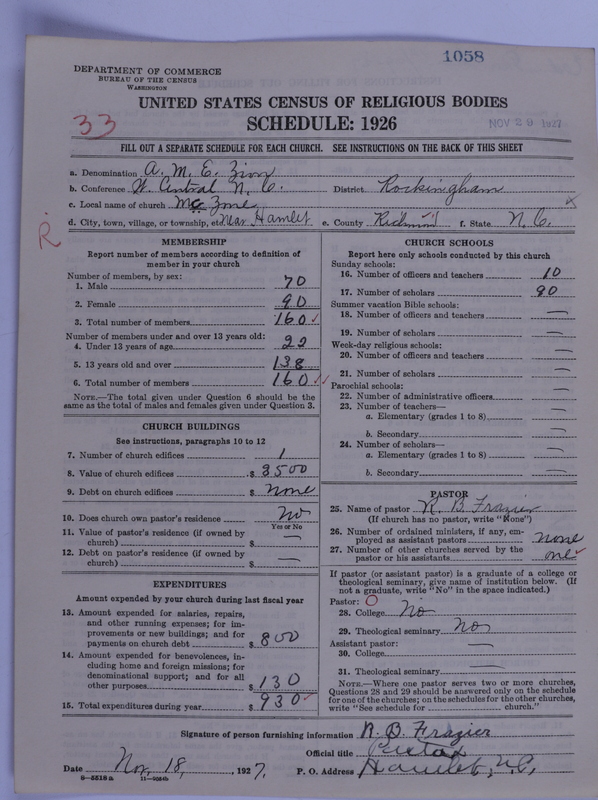 1058
DEPARTMENT OF COMMERCE
BUREAU OF THE CENSUS
WASHINGTON
UNITED STATES CENSUS OF RELIGIOUS BODIES
33
SCHEDULE: 1926
NOV 29 1927
FILL OUT A SEPARATE SCHEDULE FOR EACH CHURCH. SEE INSTRUCTIONS ON THE BACK OF THIS SHEET
a. Denomination A. M. E. Zion
b. Conference W. Central N. C. District Rockingham
c. Local name of church
d. City, town, village, or township, etc. Near Hamlet e. County Richmond f. State N. C.
R.
MEMBERSHIP
Report number of members according to definition of
member in your church
Number of members, by sex:
1. Male 70
2. Female 90
3. Total number of members 160
Number of members under and over 13 years old:
4. Under 13 years of age 22
5. 13 years old and over 138
6. Total number of members 160
NOTE.—The total given under Question 6 should be the
same as the total of males and females given under Question 3.
CHURCH BUILDINGS
See instructions, paragraphs 10 to 12
7. Number of church edifices 1
8. Value of church edifices $ 3500
9. Debt on church edifices $ none
10. Does church own pastor's residence no
Yes or No
11. Value of pastor's residence (if owned by
church) $ —
12. Debt on pastor's residence (if owned by
church) $ —
EXPENDITURES
Amount expended by your church during last fiscal year
13. Amount expended for salaries, repairs,
and other running expenses; for im-
provements or new buildings; and for
payments on church debt $ 800
14. Amount expended for benevolences, in-
cluding home and foreign missions; for
denominational support; and for all
other purposes $ 130
15. Total expenditures during year $ 930
CHURCH SCHOOLS
Report here only schools conducted by this church
Sunday schools:
16. Number of officers and teachers 10
17. Number of scholars 90
Summer vacation Bible schools:
18. Number of officers and teachers —
19. Number of scholars —
Week-day religious schools:
20. Number of officers and teachers —
21. Number of scholars —
Parochial schools:
22. Number of administrative officers —
23. Number of teachers—
a. Elementary (grades 1 to 8) —
b. Secondary —
24. Number of scholars—
a. Elementary (grades 1 to 8) —
b. Secondary —
PASTOR
25. Name of pastor N. B. Frazier
(If church has no pastor, write "None")
26. Number of ordained ministers, if any, em-
ployed as assistant pastors none
27. Number of other churches served by the
pastor or his assistants one
If pastor (or assistant pastor) is a graduate of a college or
theological seminary, give name of institution below. (If
not a graduate, write "No" in the space indicated.)
Pastor: O
28. College No
29. Theological seminary No
Assistant pastor: —
30. College
31. Theological seminary —
NOTE.—Where one pastor serves two or more churches,
Questions 28 and 29 should be answered only on the schedule
for one of the churches; on the schedules for the other churches,
write "See schedule for ........ church."
Signature of person furnishing information N. B. Frazier
Official title Pastor
Date Nov. 18, , 1927. P. O. Address Hamlet, N. C.
8—5518a